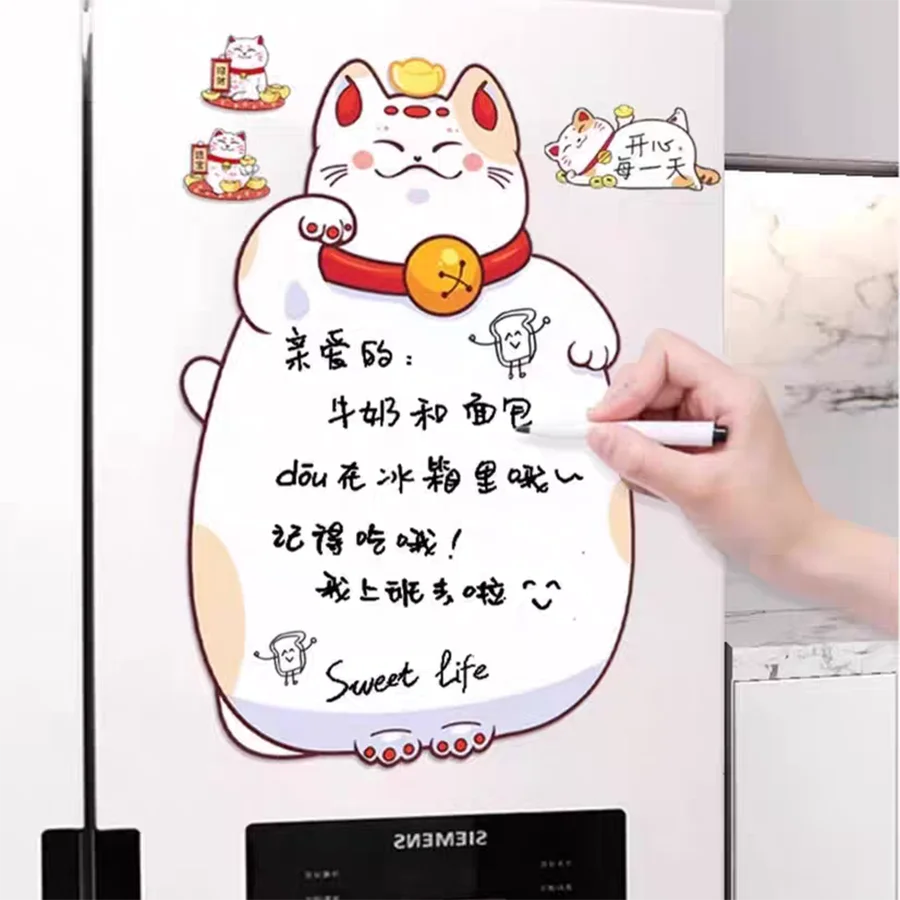 开心
每一天
亲爱的：
牛奶和面包
dōu在冰箱里哦~
记得吃哦！
我上班去啦
Sweet life
SIEMENS